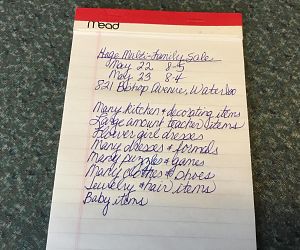 mead
Huge Multi-Family Sales
May 22 8-5
May 23 8-4
821 Bishop Avenue, Waterloo
Many kitchen & decorating items
Large amount teacher items
Flower girl dresses
Many dresses & formals
Many puzzles & games
Many clothes & shoes
Jewelry & hair items
Baby items